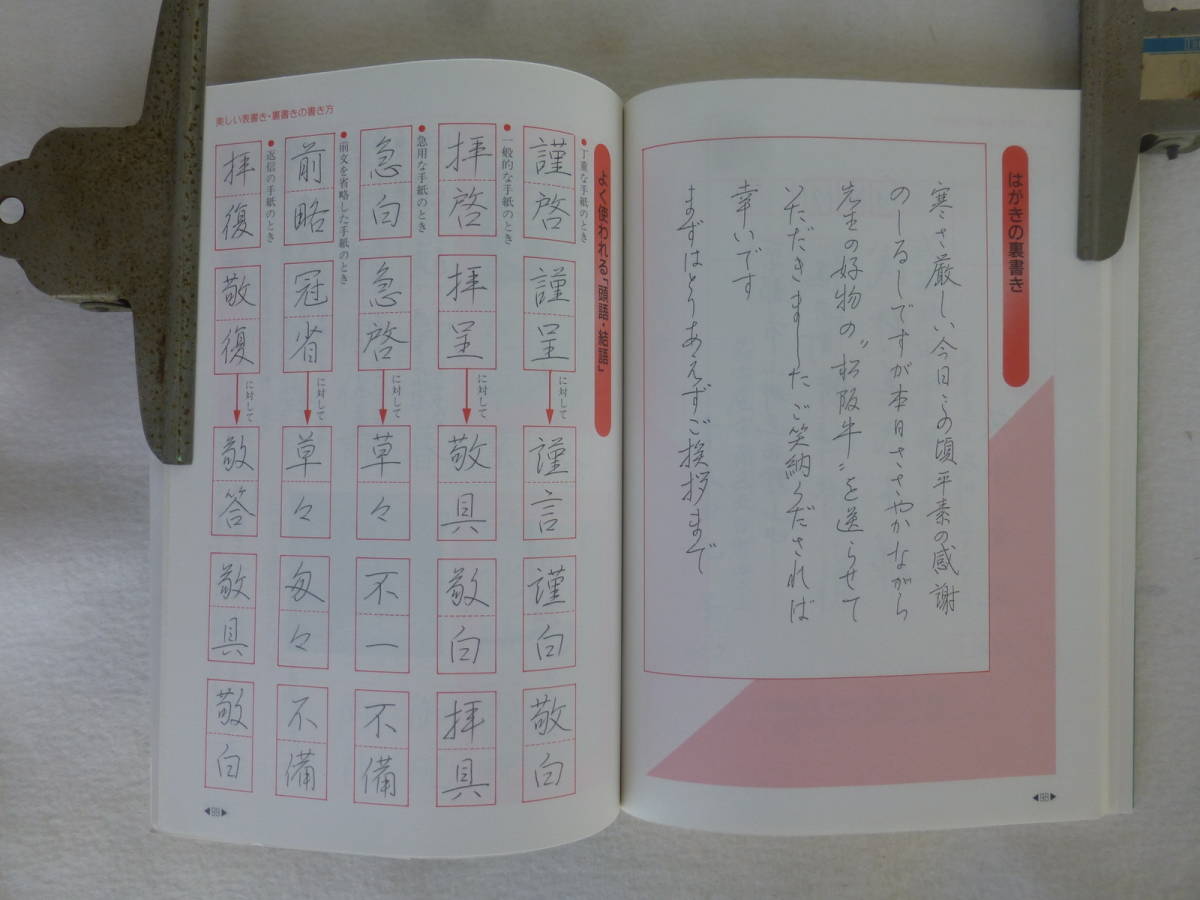 はがきの裏書き
寒さ厳しい今日この頃平素の感謝
のしるしですが本日ささやかながら
先生の好物の〝松阪牛〟を送らせて
いただきましたご笑納くだされば
幸いです
まずはとりあえずご挨拶まで
◀98▶
美しい表書き・裏書きの書き方
よく使われる「頭語・結語」
●丁重な手紙のとき
謹啓
謹呈
に対して
謹言
謹白
敬白
●一般的な手紙のとき
拝啓
拝呈
に対して
敬具
敬白
拝具
●急用な手紙のとき
急白
急啓
に対して
草々
不一
不備
●前文を省略した手紙のとき
前略
冠省
に対して
草々
匆々
不備
●返信の手紙のとき
拝復
敬復
に対して
敬答
敬具
敬白